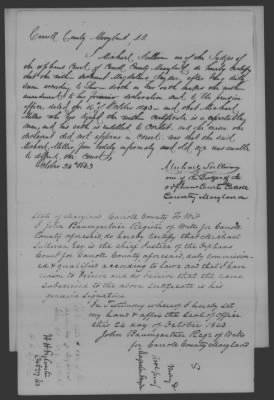 Carroll County Maryland, Ss.
I Michael Sullivan one of the Judges of
the orphans Court of Carroll County Maryland do hereby certify
that the within declarant Magdalena Snyder, after they duly
sworn according to law doth on her oath make the within
amendment to her former declaration sent to the pension
office dated the 16 October 1843 and that Michael
Miller who signed the within certificate is a respectable
man, and his oath is entitled to credit, and the reason the
declarant did not appear in court was that she and
Michael Miller from bodily infirmity and old age was unable
to attend the court
October 24th 1843
Michael Sullivan
one of the Judges of the
orphans Courts Carroll
County Maryland
State of Maryland Carroll County To Wit
I John Baumgartner Register of Wills for Carroll
County aforesaid, do hereby Certify that Michael
Sullivan Esq is the chief Justice of the Orphans
Court for Carroll County aforesaid, duly commission-
ed & qualified according to law & and that I have
reason to believe and do believe that the name
subscribed to the above certificate is his
genuine signature
In Testimony whereof I hereby set
my hand & affix the seal of office
this 24 day of October 1843
John Baumgartner Regr of Wills
for Carroll County Maryland